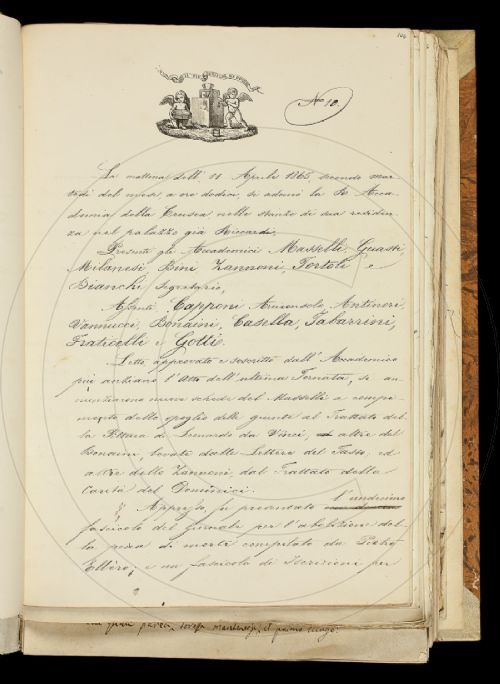 104
N.o 10.
La mattina dell' 11 Aprile 1865, secondo mar-
tedì del mese a ore dodici si adunò la R. Acca-
demia della Crusca nelle stanze di sua residen-
za nel palazzo già Riccardi.
Presenti gli Accademici Masselli, Guasti,
Milanesi, Bini, Zannoni, Tortoli e
Bianchi, Segretario,
Assenti Capponi Arciconsolo Antinori,
Vannucci, Bonaini, Casella, Tabarrini,
Fraticelli e Gotti.
Letto, approvato e soscritto dall' Accademico
più anziano l'Atto dell' ultima Tornata, si an-
nunziarono nuove schede del Masselli a compi-
mento dello spoglio delle giunte al Trattato del-
la Pittura di Leonardo da Vinci, altre del
Bonaini, levate dalle Lettere del Tasso, ed
altre dello Zannoni, dal Trattato della
Carità del Dominici.
Appresso fu presentato l'undecimo
fascicolo del Giornale per l'abolizione del-
la pena di morte compilato da Pietro
Ellero; e un fascicolo di Iscrizioni per